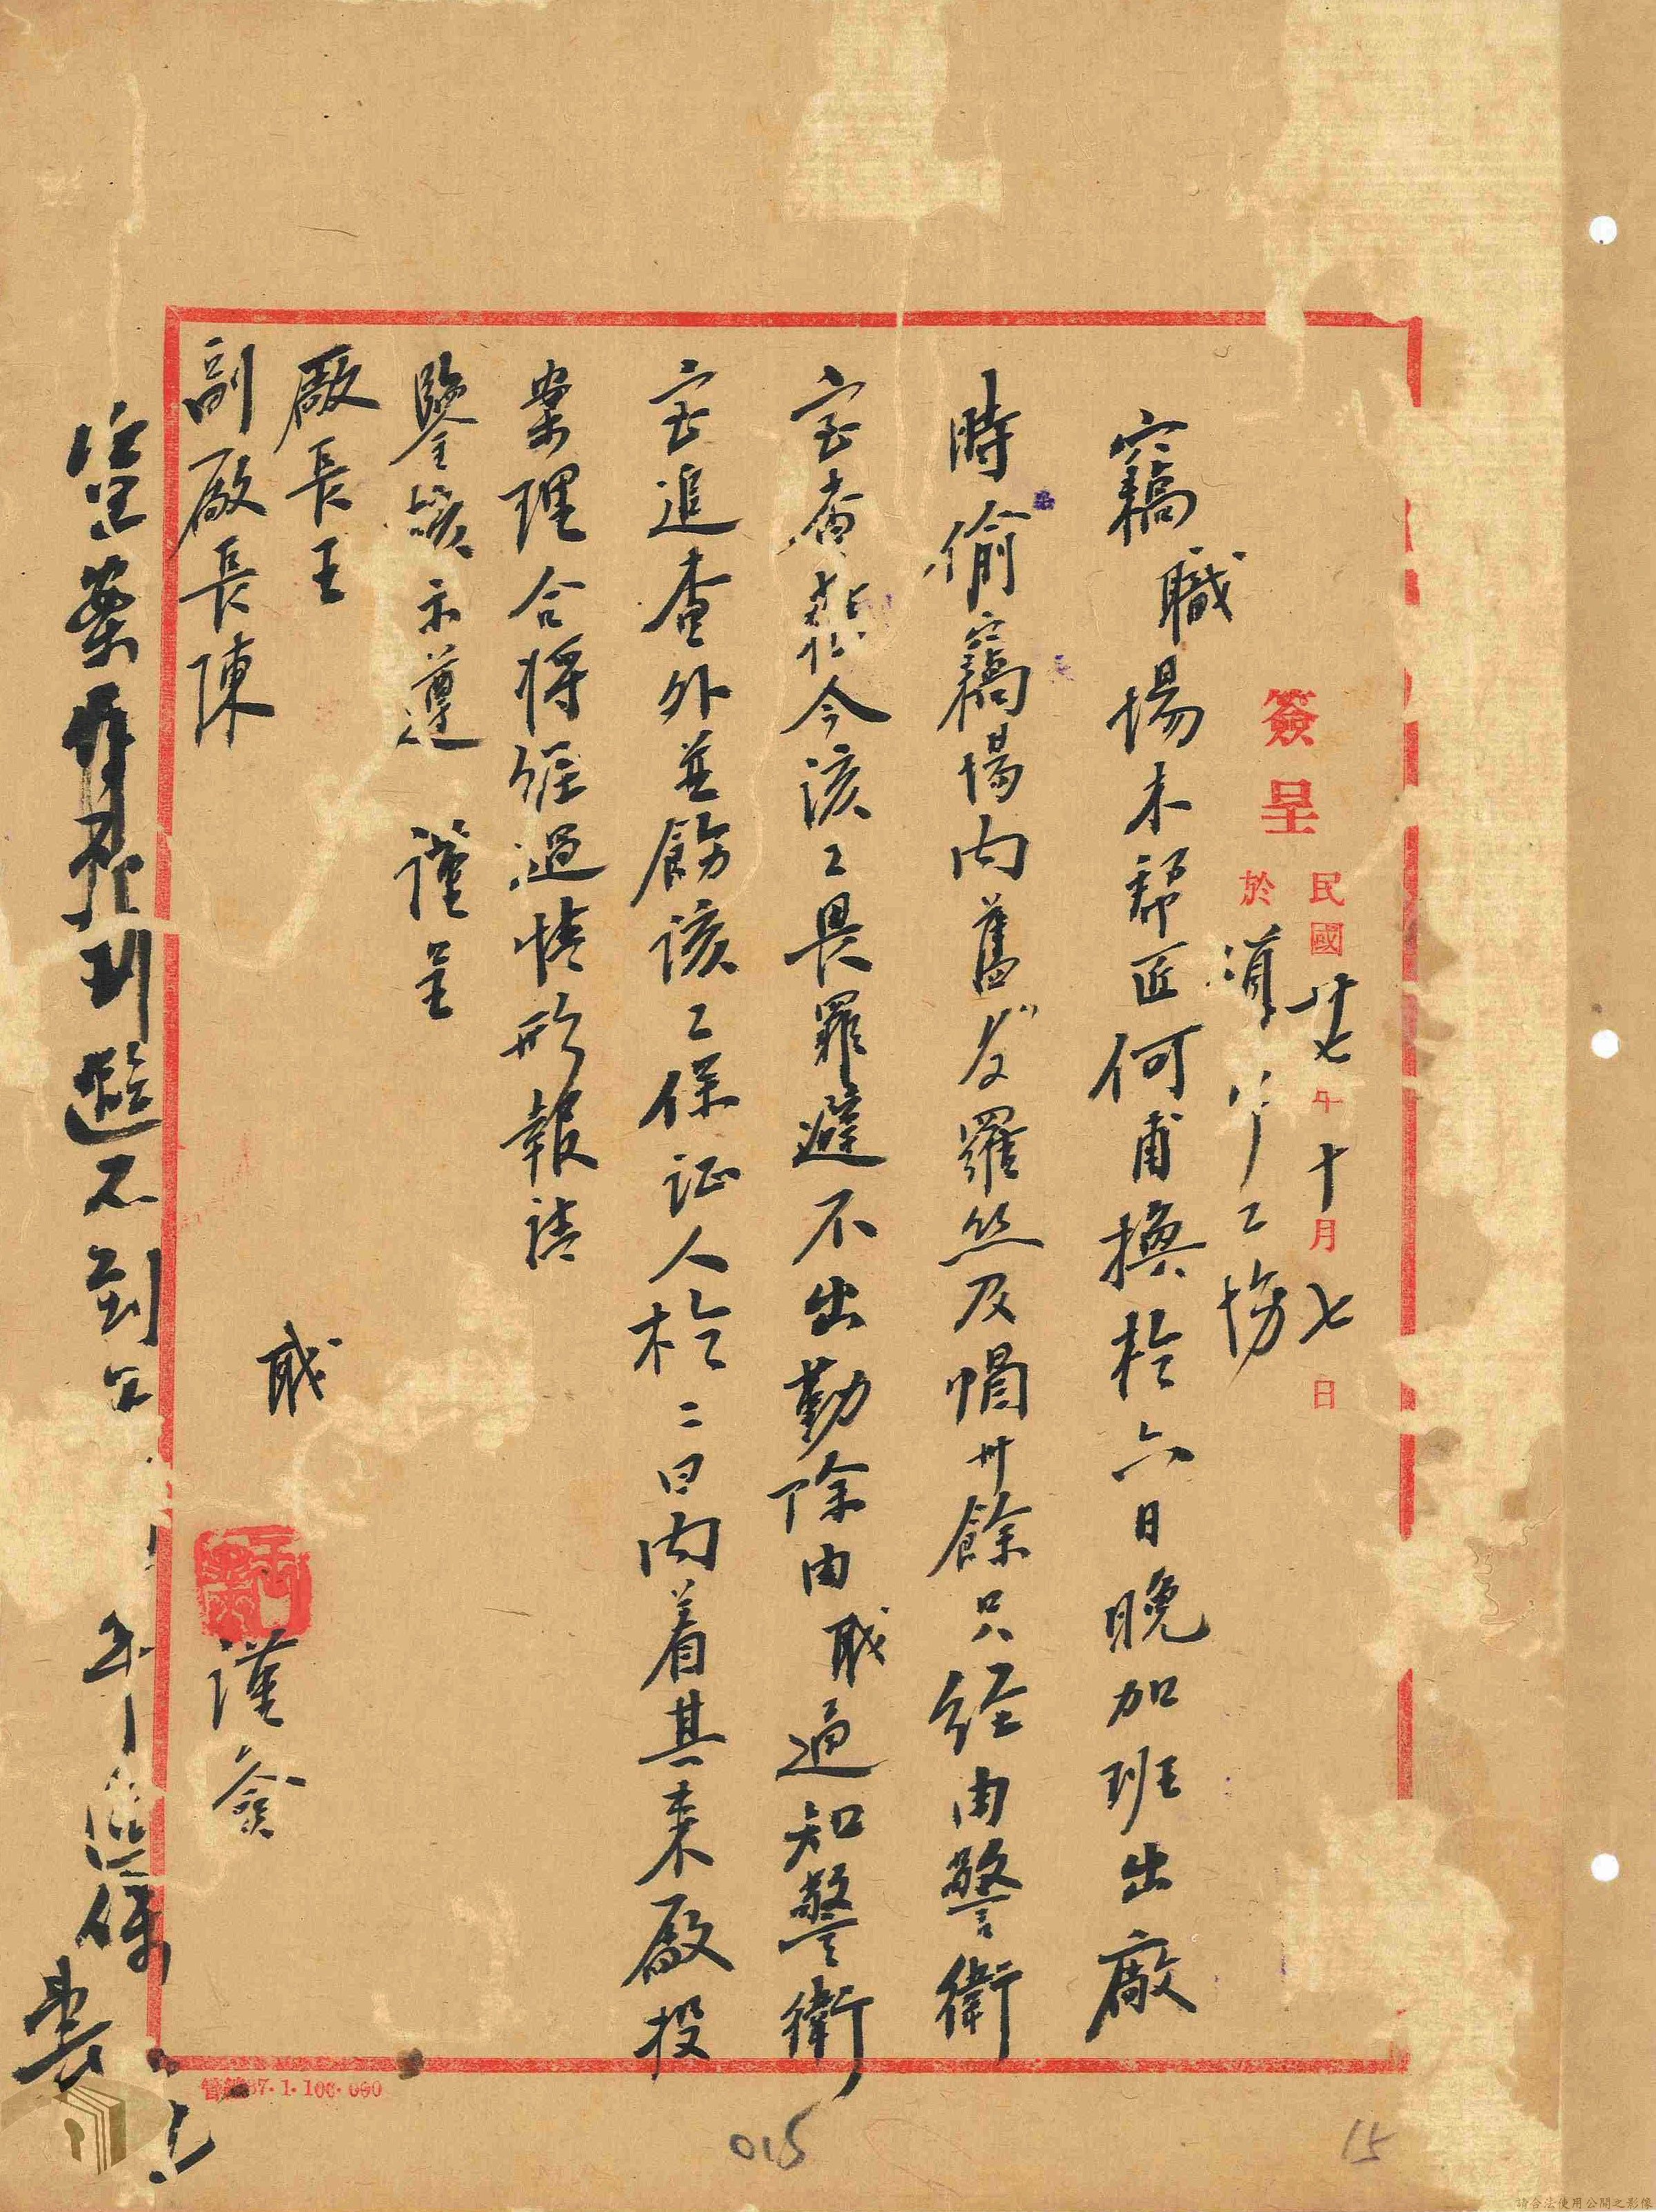 簽呈
民國卅七年十月七日
於
工場
竊職場木帮匠何甫換於六日晚加班出廠
時偷竊場内舊 羅丝及帽卅餘只經由警衛
室查獲今該工畏罪避不出勤除由职通知警衛
室追查外並飭该工保证人於二日内着其来廠投
案理合将經過情形報請
鑒核示遵 謹呈
廠長王
副廠長陳
职 謹簽
案 到 不到
保
管 37.1.100.000
015
15
請合法使用公開之影像